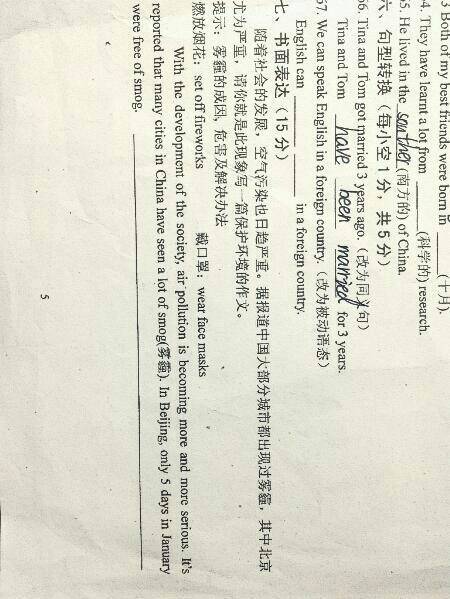 3 Both of my best friends were born in ______ (十月).
4. They have learnt a lot from ______ (科学的) research.
5. He lived in the souther (南方的) of China.
六、句型转换（每小空1分，共5分）
56. Tina and Tom got married 3 years ago. (改为同义句)
Tina and Tom have been married for 3 years.
57. We can speak English in a foreign country.（改为被动语态）
English can ______ ______ in a foreign country.
七、书面表达（15分）
随着社会的发展，空气污染也日趋严重。据报道中国大部分城市都出现过雾霾，其中北京
尤为严重，请你就是此现象写一篇保护环境的作文。
提示：雾霾的成因，危害及解决办法
燃放烟花：set off fireworks 戴口罩：wear face masks
With the development of the society, air pollution is becoming more and more serious. It's
reported that many cities in China have seen a lot of smog(雾霾). In Beijing, only 5 days in January
were free of smog.
5